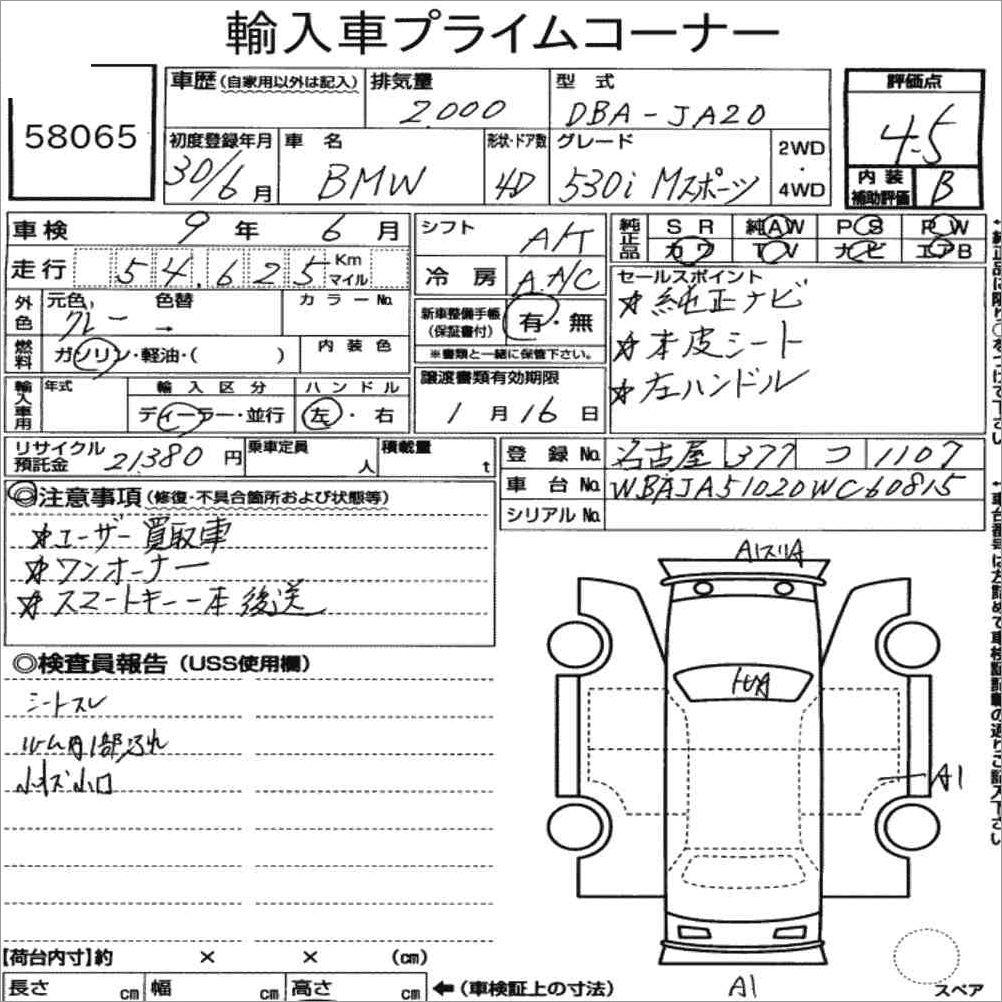 輸入車プライムコーナー
58065
車歴(自家用以外は記入)
排気量
2.000
型式
DBA-JA20
評価点
4.5
内装補助評価 B
初度登録年月
30/6月
車名
BMW
形状・ドア数
4D
グレード
530i Mスポーツ
2WD
・
4WD
車検 9年 6月
走行 54,625 Km マイル
外色
元色 グレー
色替 →
カラーNo.
燃料
ガソリン・軽油・( )
内装色
輸入車用
年式
輸入区分
ディーラー・並行
ハンドル
左・右
シフト A/T
冷房 A.A/C
新車整備手帳(保証書付)
有・無
※書類と一緒に保管下さい。
譲渡書類有効期限
1月16日
純正品
SR 純AW PS PW
カワ TV ナビ エアB
セールスポイント
☆純正ナビ
☆本皮シート
☆左ハンドル
リサイクル預託金 21380円
乗車定員 人
積載量 t
登録No. 名古屋 377 つ 1107
車台No. WBAJA51020WC60815
シリアルNo.
◎注意事項(修復・不具合箇所および状態等)
☆ユーザー買取車
☆ワンオーナー
☆スマートキー一本後送
◎検査員報告(USS使用欄)
シートスレ
ルーム内1部汚れ
小キズ小凹
A1スリA
トビA
A1
A1
スペア
【荷台内寸】約 × × (cm)
長さ cm 幅 cm 高さ cm
←(車検証上の寸法)
←純正品に限り○をつけて下さい
←車台番号は左詰めで車検証記載の通りご記入下さい